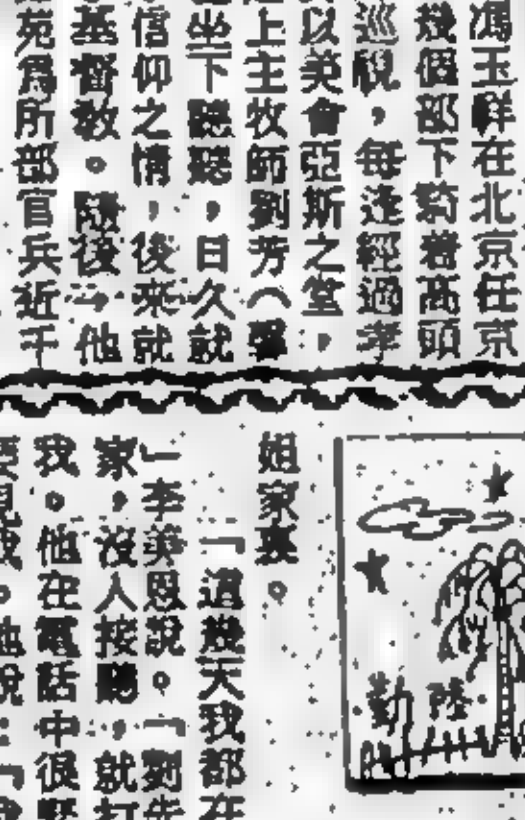 馮玉祥在北京任京
幾個部下騎着高頭
巡視，每逢經過孝
以美會亞斯之堂，
上主牧師劉芳（
坐下聽聽，日久就
信仰之情，後來就
基督教。隨後，他
苑為所部官兵近千
陸
勤
姐家裏。
「這幾天我都在
」李美恩說。「劉先
家，沒人按聽，就打
我。他在電話中很